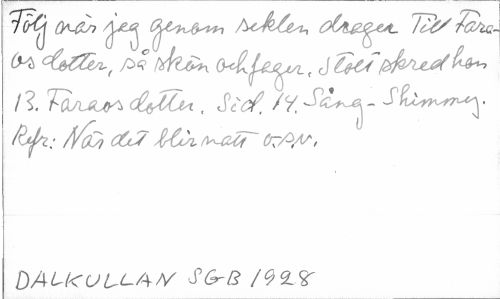 Följ när jag genom seklen drager Till Fara-
os dotter, så skön och fager. Stolt skred hon
13. Faraos dotter. Sid. 14. Sång - Shimmy.
Refr: När det blir natt o.s.v.
DALKULLAN SGB 1928